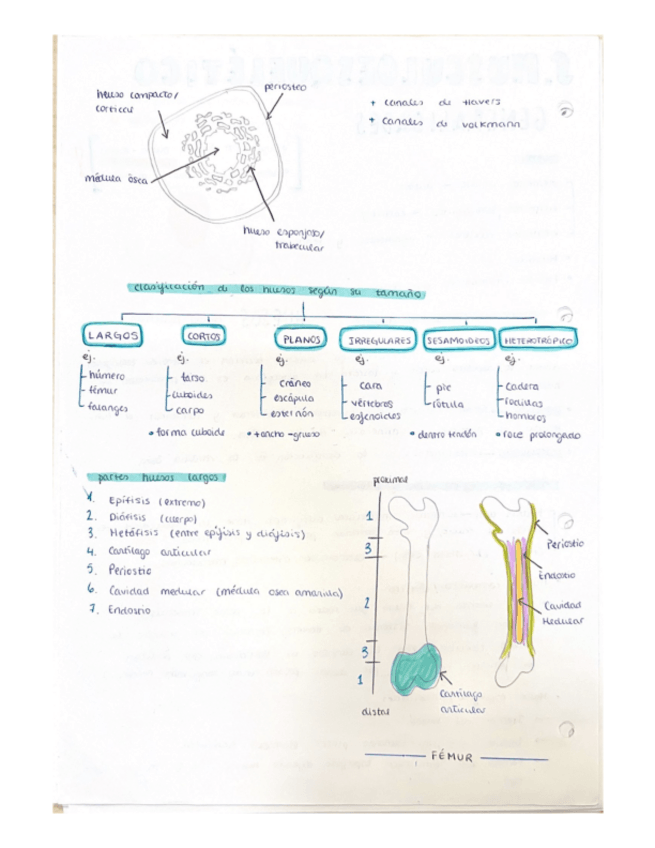 hueso compacto/
cortical
periostio
+ canales de Havers
+ canales de volkmann
médula ósea
hueso esponjoso/
trabecular
clasificación de los huesos según su tamaño
LARGOS
CORTOS
PLANOS
IRREGULARES
SESAMOIDEOS
HETEROTRÓPICO
ej.
ej.
ej.
ej.
ej.
ej.
húmero
fémur
falanges
tarso
cuboides
carpo
cráneo
escápula
esternón
cara
vértebras
esfenoides
pie
rótula
cadera
rodillas
hombros
• forma cuboide
• +ancho -grueso
• dentro tendón
• roce prolongado
partes huesos largos
1. Epífisis (extremo)
2. Diáfisis (cuerpo)
3. Metáfisis (entre epífisis y diáfisis)
4. Cartílago articular
5. Periostio
6. Cavidad medular (médula osea amarilla)
7. Endostio
proximal
1
3
2
3
1
distal
Cartílago
articular
Periostio
Endostio
Cavidad
Medular
FÉMUR